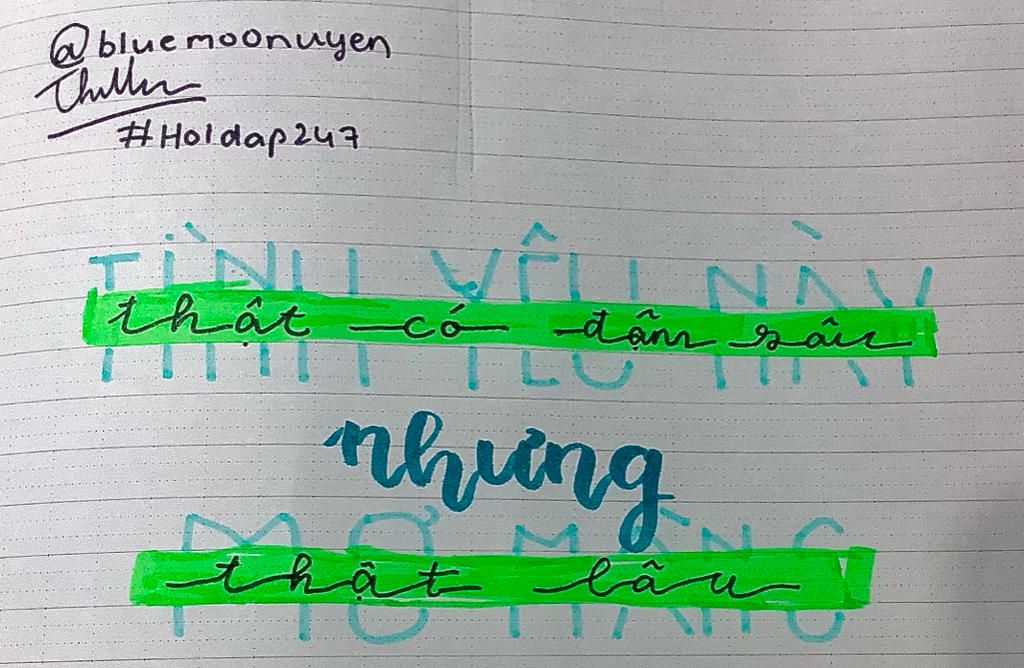 @bluemoonuyen
#Hoidap247
TÌNH YÊU NÀY
thật có đậm sâu
nhưng
MƠ MÀNG
thật lâu